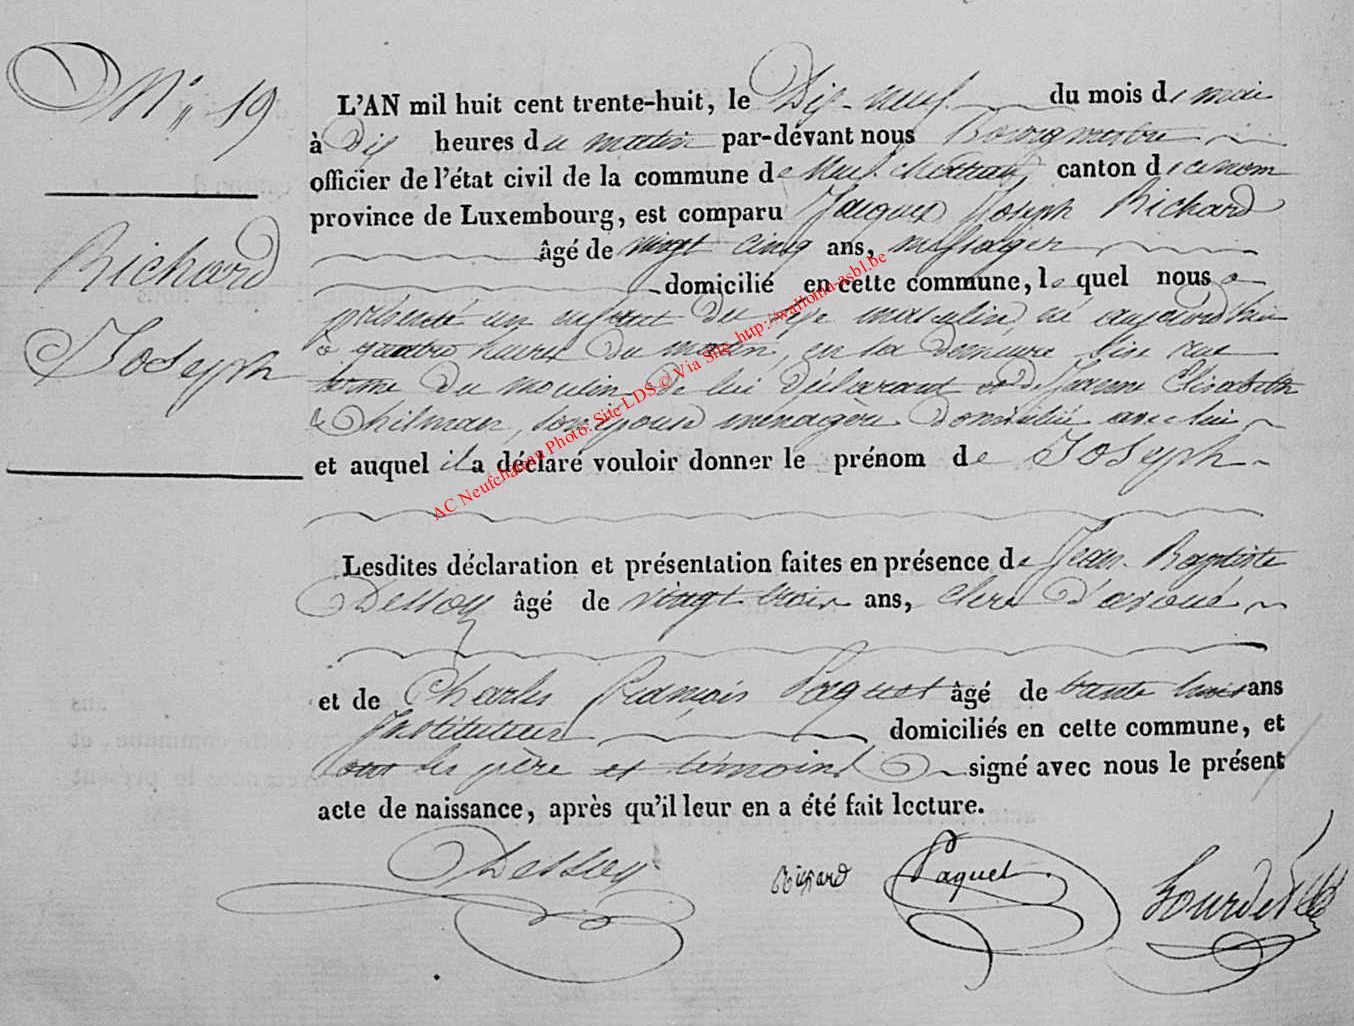 N° 19
Richard
Joseph
L'AN mil huit cent trente-huit, le Dix-neuf du mois de mai
à Dix heures du matin par-dévant nous Bourgmestre
officier de l'état civil de la commune de Neufchâteau, canton de ce nom
province de Luxembourg, est comparu Jacques Joseph Richard
âgé de vingt cinq ans, messager
domicilié en cette commune, lequel nous a
présenté un enfant du sexe masculin, né aujourd'hui
à quatre heures du matin, en sa demeure, sise rue
du moulin de lui déclarant et de Jeanne Elisabeth
son épouse ménagère domiciliée avec lui
et auquel il a déclaré vouloir donner le prénom de Joseph
Lesdites déclaration et présentation faites en présence de Jean-Baptiste
Dessoy âgé de vingt trois ans, clerc d'avoué
et de Charles François Paquet âgé de trente huit ans
Instituteur domiciliés en cette commune, et
ont les père et témoins signé avec nous le présent
acte de naissance, après qu'il leur en a été fait lecture.
Dessoy Richard Paquet
AC Neufchateau Photo: Site LDS © Via Site http://wallonia-asbl.be